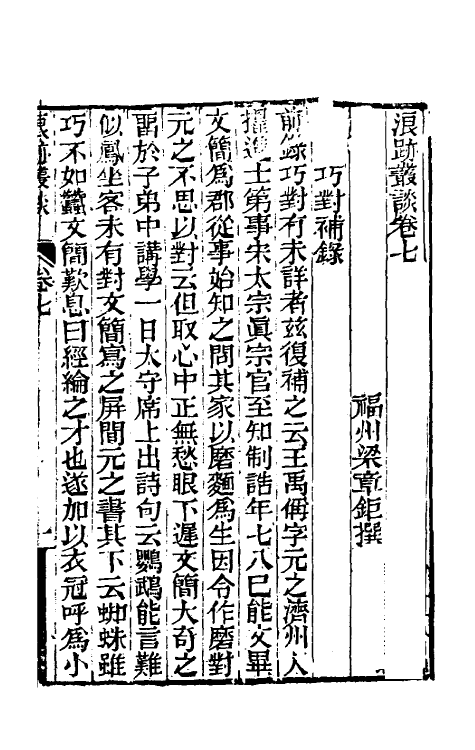 浪跡叢談卷七
福州梁章鉅撰
巧對補錄
前錄巧對有未詳者茲復補之云王禹偁字元之濟州人
擢進士第事宋太宗眞宗官至知制誥年七八已能文畢
文簡爲郡從事始知之問其家以磨麵爲生因令作磨對
元之不思以對云但取心中正無愁眼下遲文簡大奇之
畱於子弟中講學一日太守席上出詩句云鸚鵡能言難
似鳳坐客未有對文簡寫之屏間元之書其下云蜘蛛雖
巧不如蠶文簡歎息曰經綸之才也遂加以衣冠呼爲小
浪跡叢談
卷七
一